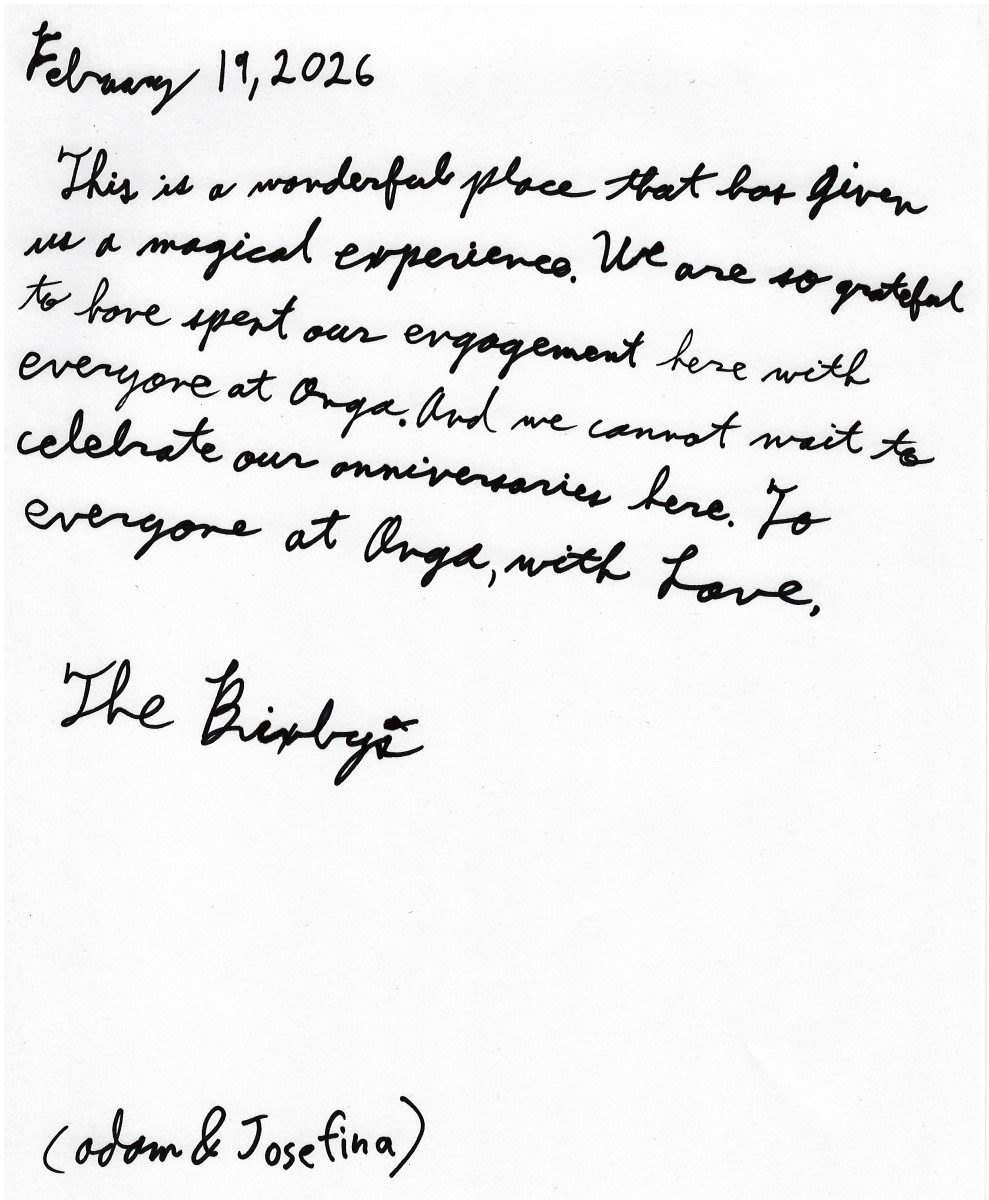 February 19, 2026
This is a wonderful place that has given
us a magical experience. We are so grateful
to have spent our engagement here with
everyone at Onga. And we cannot wait to
celebrate our anniversaries here. To
everyone at Onga, with Love,
The Bixbys
(Adam & Josefina)